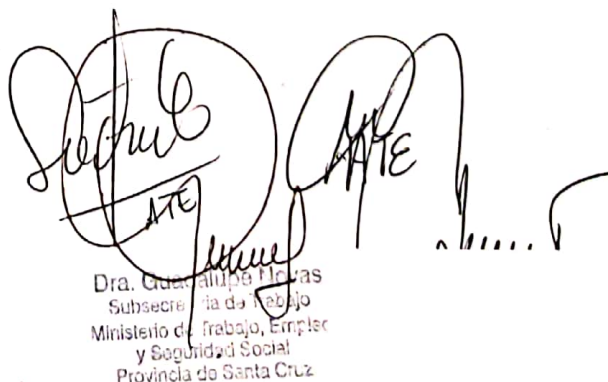 ATE
ATE
Dra. Guadalupe Novas
Subsecretaria de Trabajo
Ministerio de Trabajo, Empleo
y Seguridad Social
Provincia de Santa Cruz